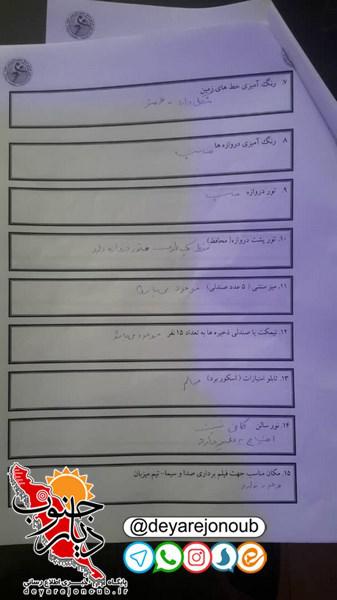 ۷. رنگ آمیزی خط های زمین
۸. رنگ آمیزی دروازه ها مناسب
۹. تور دروازه مناسب
۱۰. تور پشت دروازه( محافظ)
۱۱. میز منشی ( ۵ عدد صندلی) موجود می باشد
۱۲. نیمکت یا صندلی ذخیره ها به تعداد ۱۵ نفر موجود می باشد
۱۳. تابلو امتیازات ( اسکور برد) سالم
۱۴. نور سالن کافی نیست
احتیاج به تعمیر دارد
۱۵. مکان مناسب جهت فیلم برداری صدا و سیما- تیم میزبان
دیار جنوب
پایگاه خبری اطلاع رسانی
deyarejonoub.ir
@deyarejonoub